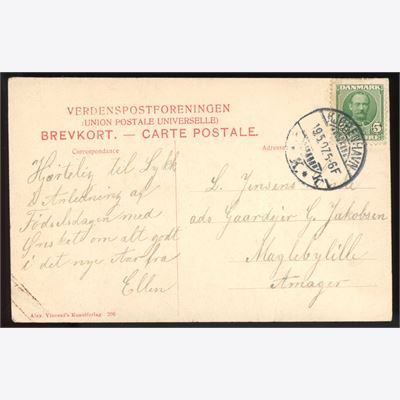 VERDENSPOSTFORENINGEN
(UNION POSTALE UNIVERSELLE)
BREVKORT. — CARTE POSTALE.
Correspondance
Adresse
DANMARK
5
KJØBENHAVN
19.5.07.5-6F
K.
Hjertelig til Lykke
i Anledning af
Fødselsdagen med
Ønsket om alt godt
i det nye Aar fra
Ellen
L. Jensens
ads Gaardejer G. Jakobsen
Maglebylille
Amager
Alex. Vincent's Kunstforlag 206